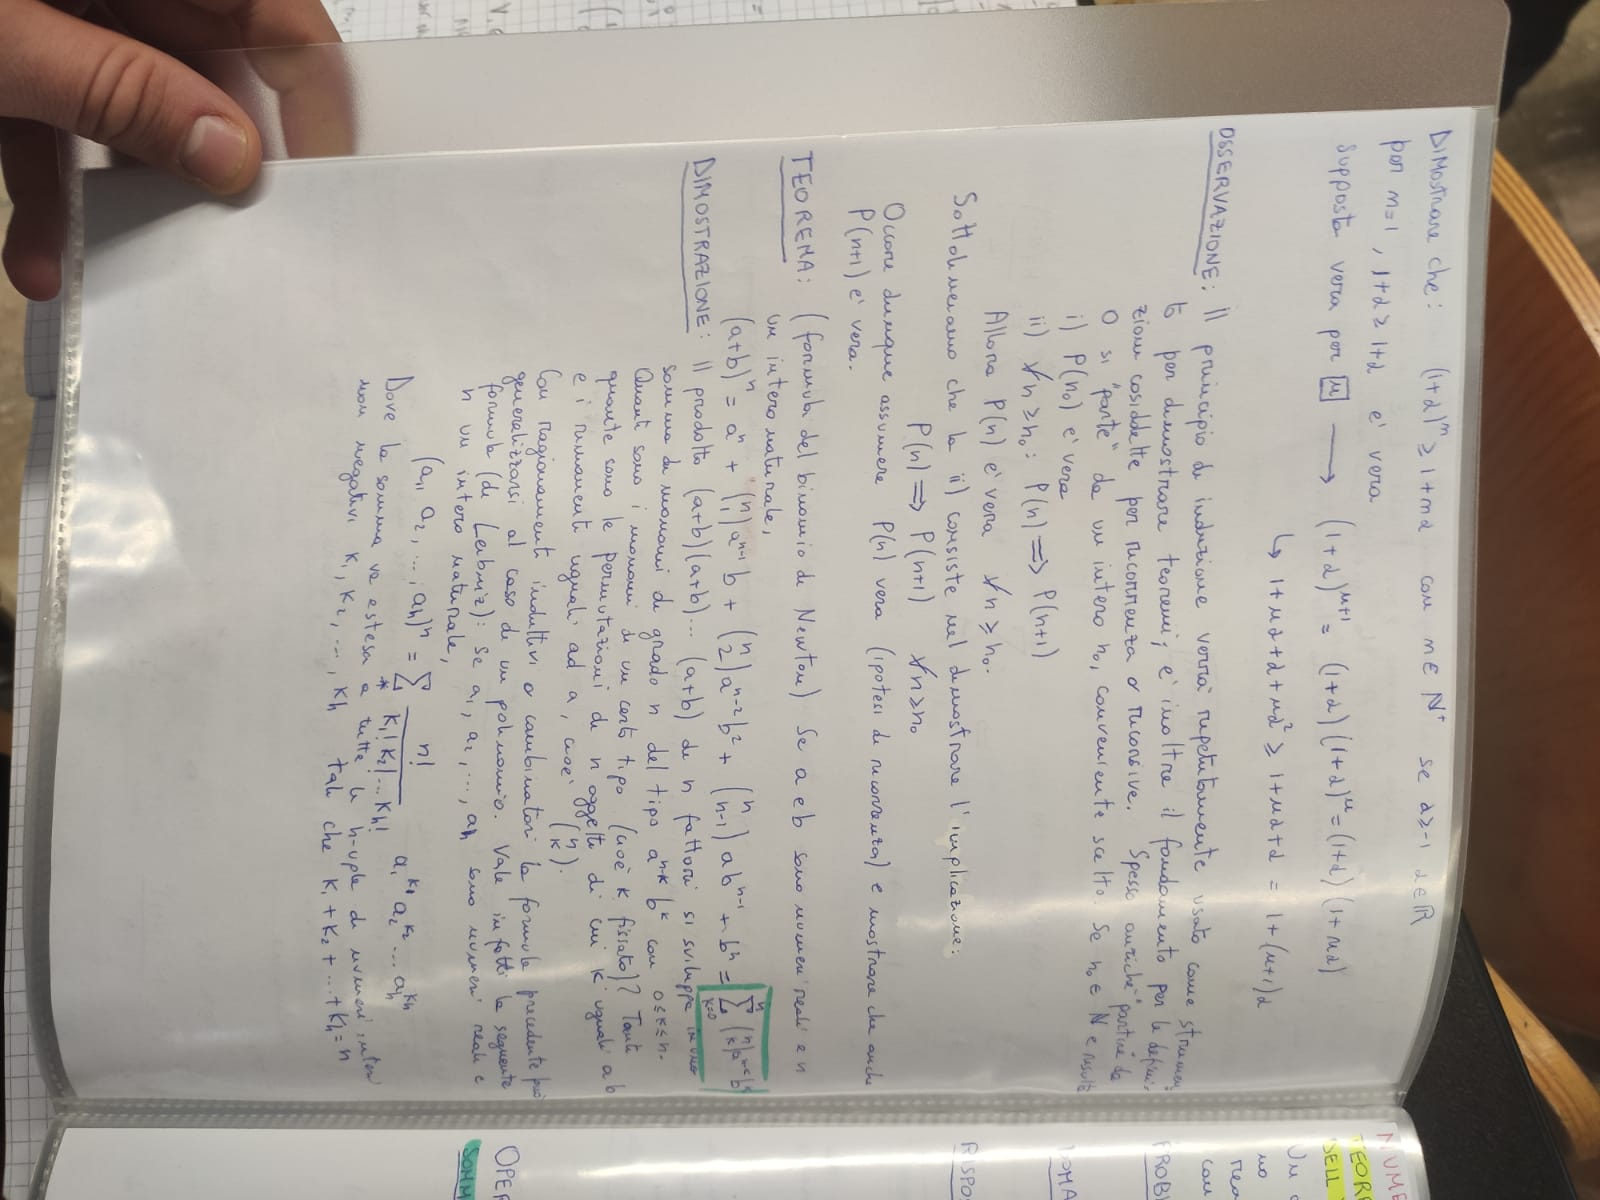 Dimostrare che: (1+α)^m ≥ 1+mα con m ∈ N⁺ se α>-1 α∈ℝ
per m=1, 1+α ≥ 1+α è vera
supposta vera per m ⟶ (1+α)^{m+1} = (1+α)(1+α)^m = (1+α)(1+mα)
↳ 1+mα+α+mα² ≥ 1+mα+α = 1+(m+1)α
OSSERVAZIONE: Il principio di induzione verrà ripetutamente usato come strumen
to per dimostrare teoremi; è inoltre il fondamento per le defini-
zioni cosiddette per ricorrenza o ricorsive. Spesso anziché "partire da
0 si "parte" da un intero n₀, conveniente scelto. Se n₀ ∈ N e risulta
i) P(n₀) è vera
ii) ∀n ≥ n₀: P(n) ⟹ P(n+1)
Allora P(n) è vera ∀n ≥ n₀.
Sottolineiamo che la ii) consiste nel dimostrare l'implicazione:
P(n) ⟹ P(n+1) ∀n≥n₀
Occorre dunque assumere P(n) vera (ipotesi di ricorrenza) e mostrare che anche
P(n+1) è vera.
TEOREMA: (formula del binomio di Newton) Se a e b sono numeri reali e n
un intero naturale,
(a+b)^n = a^n + (n 1) a^{n-1} b + (n 2) a^{n-2} b² + (n n-1) a b^{n-1} + b^n = ∑_{k=0}^{n} (n k) a^{n-k} b^k
DIMOSTRAZIONE: Il prodotto (a+b)(a+b)... (a+b) di n fattori si sviluppa in una
somma di monomi di grado n del tipo a^{n-k} b^k con 0≤k≤n.
Quanti sono i monomi di un certo tipo (cioè k fissato)? Tanti
quante sono le permutazioni di n oggetti di cui k uguali a b
e i rimanenti uguali ad a, cioè (n k).
Con ragionamenti induttivi o combinatori la formula precedente può
generalizzarsi al caso di un polinomio. Vale infatti la seguente
formula (di Leibniz): Se a₁, a₂, ..., a_h sono numeri reali e
n un intero naturale,
(a₁, a₂, ..., a_h)^n = ∑_* n! / k₁! k₂! ... k_h! a₁^{k₁} a₂^{k₂} ... a_h^{k_h}
Dove la somma va estesa a tutte le h-uple di numeri interi
non negativi k₁, k₂, ..., k_h tali che k₁ + k₂ + ... + k_h = n
NUME
TEOR
DELL
Un
no
con
PROBL
DOMA
RISPO
OPER
SOMM